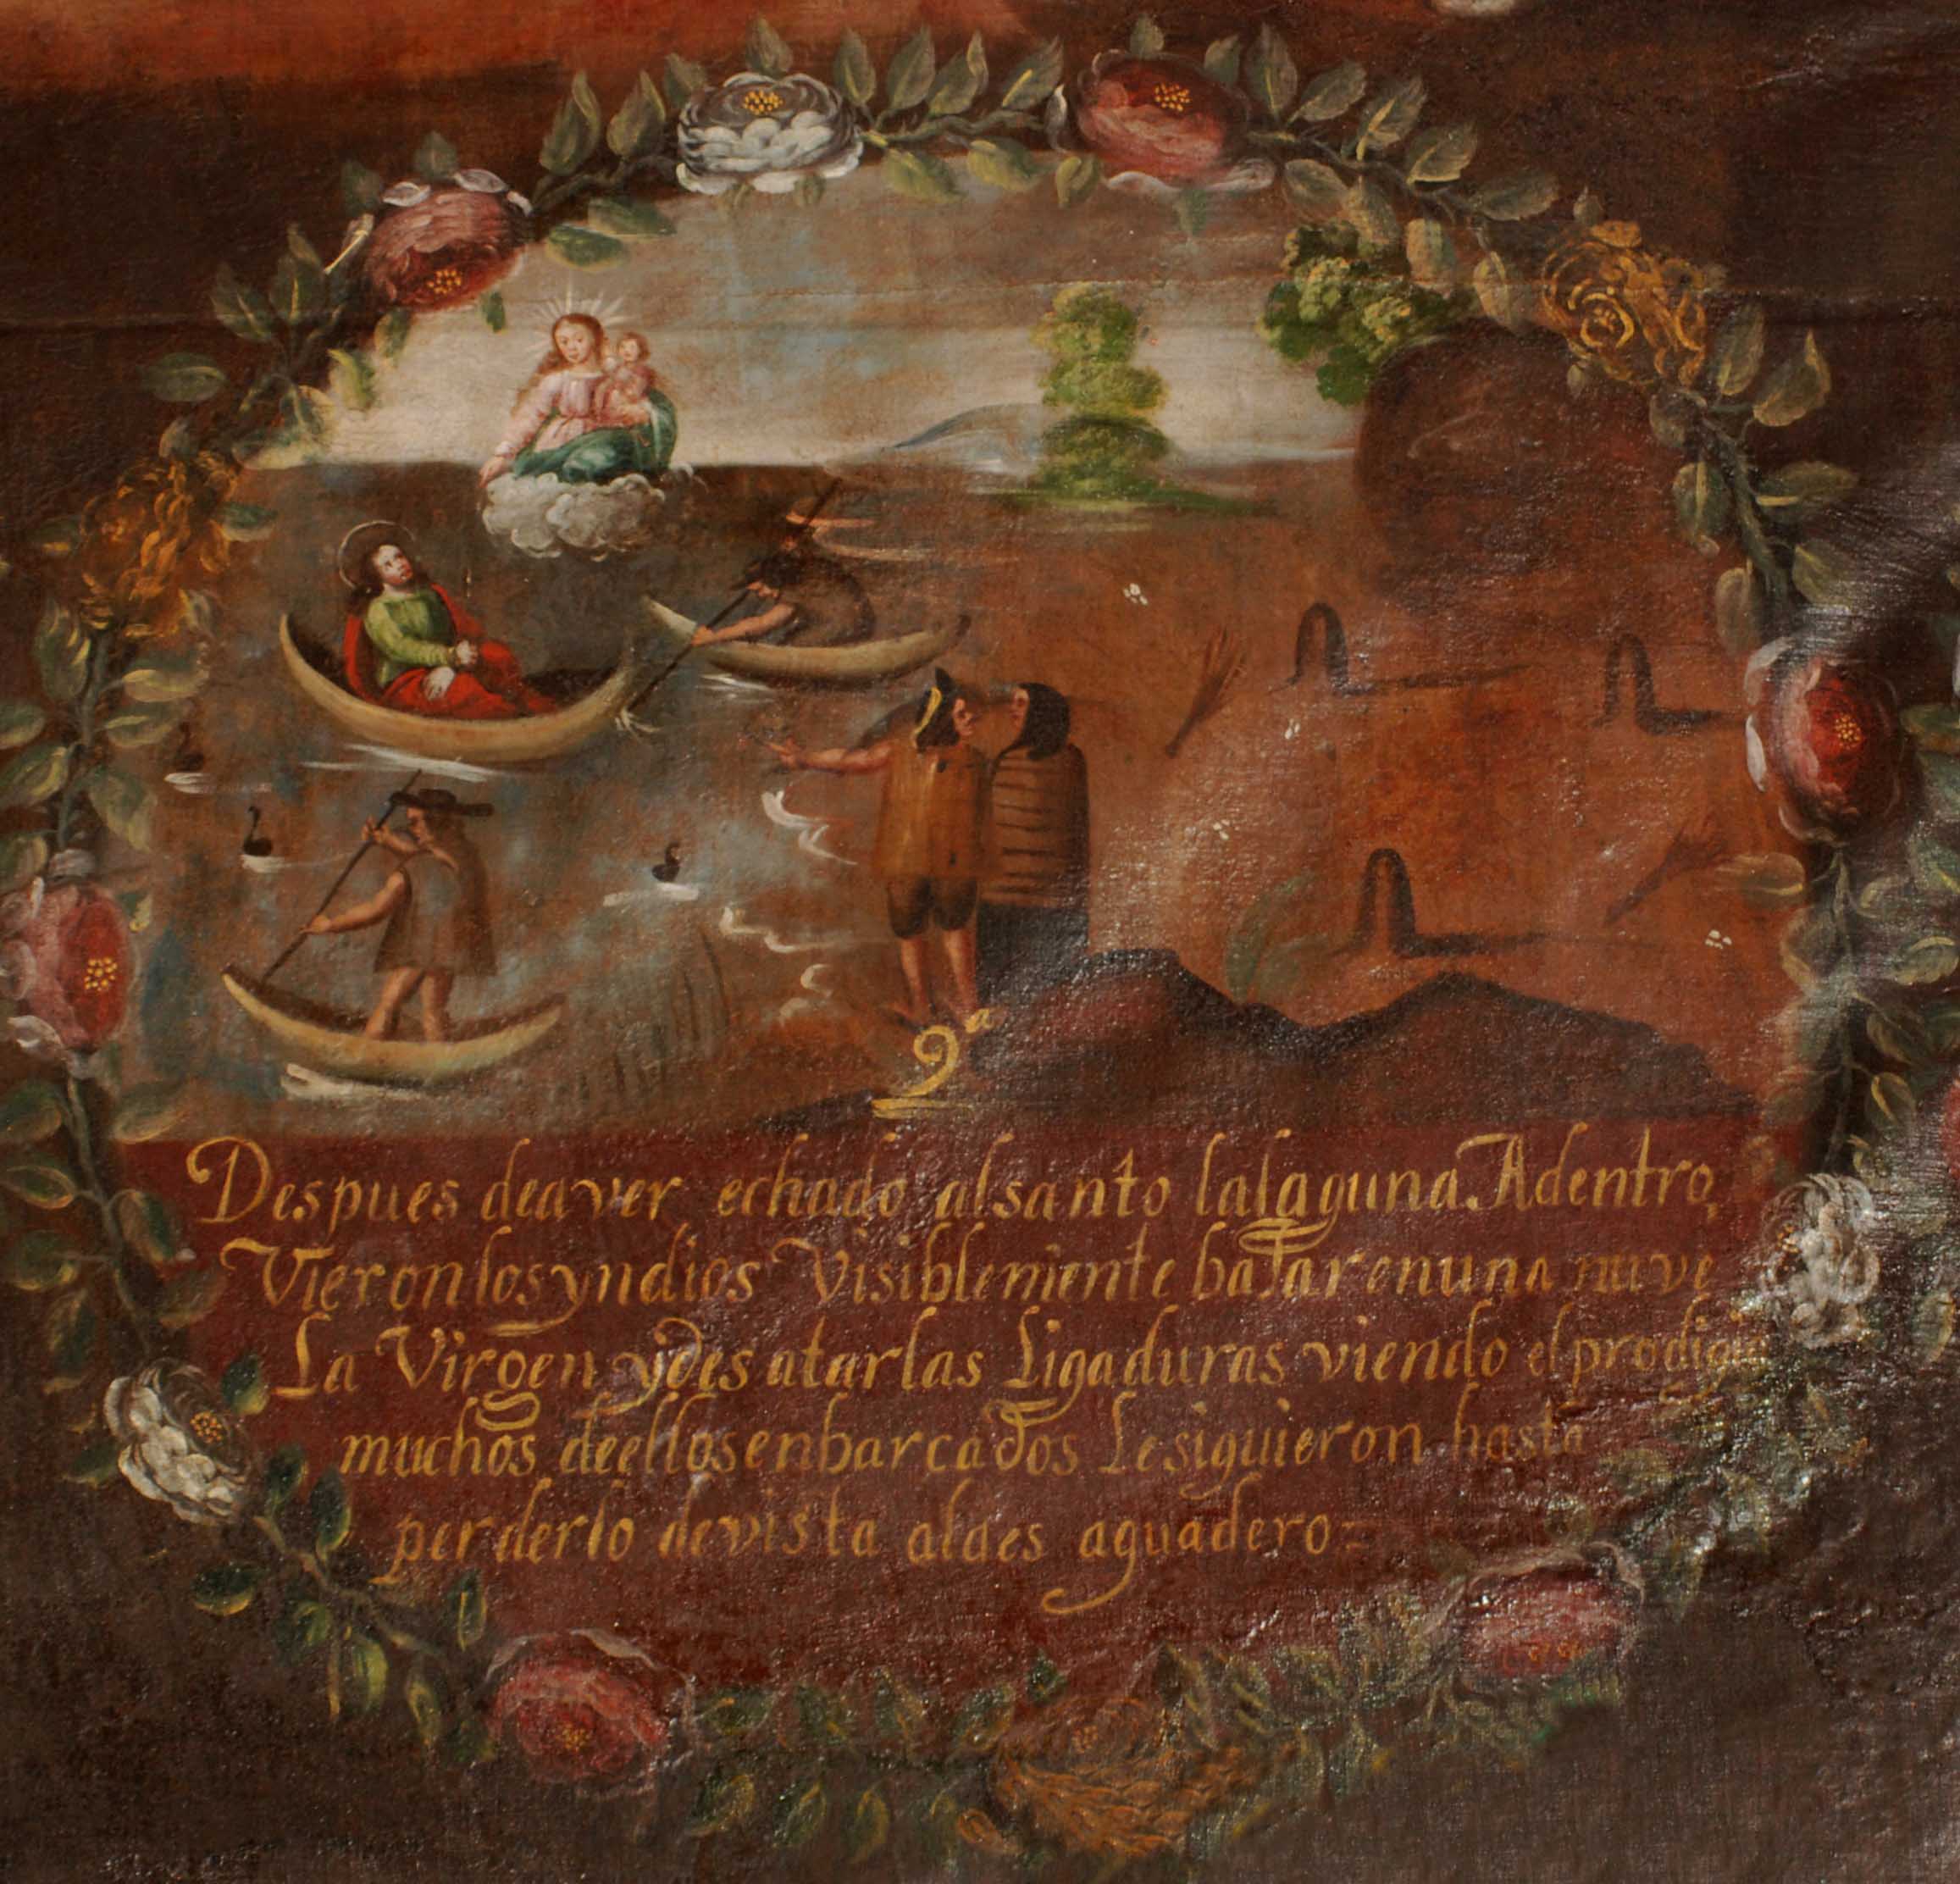 9ª
Despues deaver echado alsanto lalaguna Adentro,
Vieronlosyndios Visiblemente baJarenuna nuve
La Virgen ydes atarlas Ligaduras viendo el prodigio
muchos deellosenbarcados Lesiguieron hasta
perderlo devista alaes aguadero=